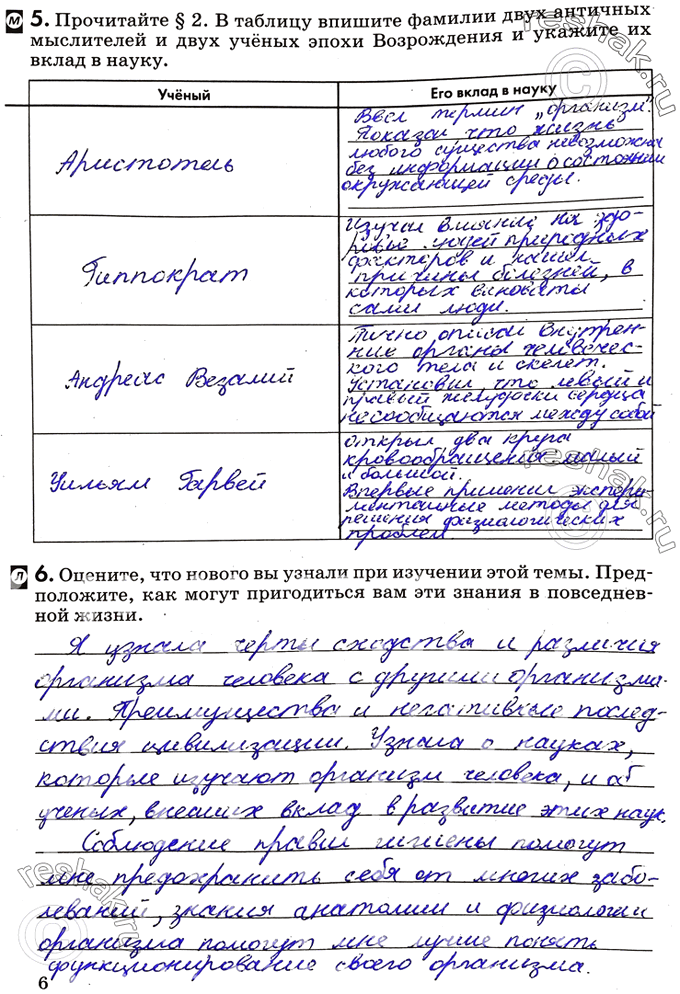 М 5. Прочитайте § 2. В таблицу впишите фамилии двух античных
мыслителей и двух учёных эпохи Возрождения и укажите их
вклад в науку.
Учёный
Его вклад в науку
Аристотель
Ввел термин „организм".
Показал что жизнь
любого существа невозможна
без информации о состоянии
окружающей среды.
Гиппократ
Изучал влияние на здо-
ровье людей природных
факторов и нашел
причины болезней, в
которых виноваты
сами люди.
Андреас Везалий
Точно описал внутрен-
ние органы человечес-
кого тела и скелет.
Установил, что левый и
правый желудочки сердца
не сообщаются между собой
Уильям Гарвей
открыл два круга
кровообращения малый
и большой.
Впервые применил экспери-
ментальные методы для
решения физиологических
проблем.
Л 6. Оцените, что нового вы узнали при изучении этой темы. Пред-
положите, как могут пригодиться вам эти знания в повседнев-
ной жизни.
Я узнала черты сходства и различия
организма человека с другими организма-
ми. Преимущества и негативные послед-
ствия цивилизации. Узнала о науках,
которые изучают организм человека, и об
ученых, внесших вклад в развитие этих наук.
Соблюдение правил гигиены помогут
мне предохранить себя от многих забо-
леваний, знания анатомии и физиологии
организма помогут мне лучше понять
функционирование своего организма.
6
reshak.ru
reshak.ru
reshak.ru
reshak.ru